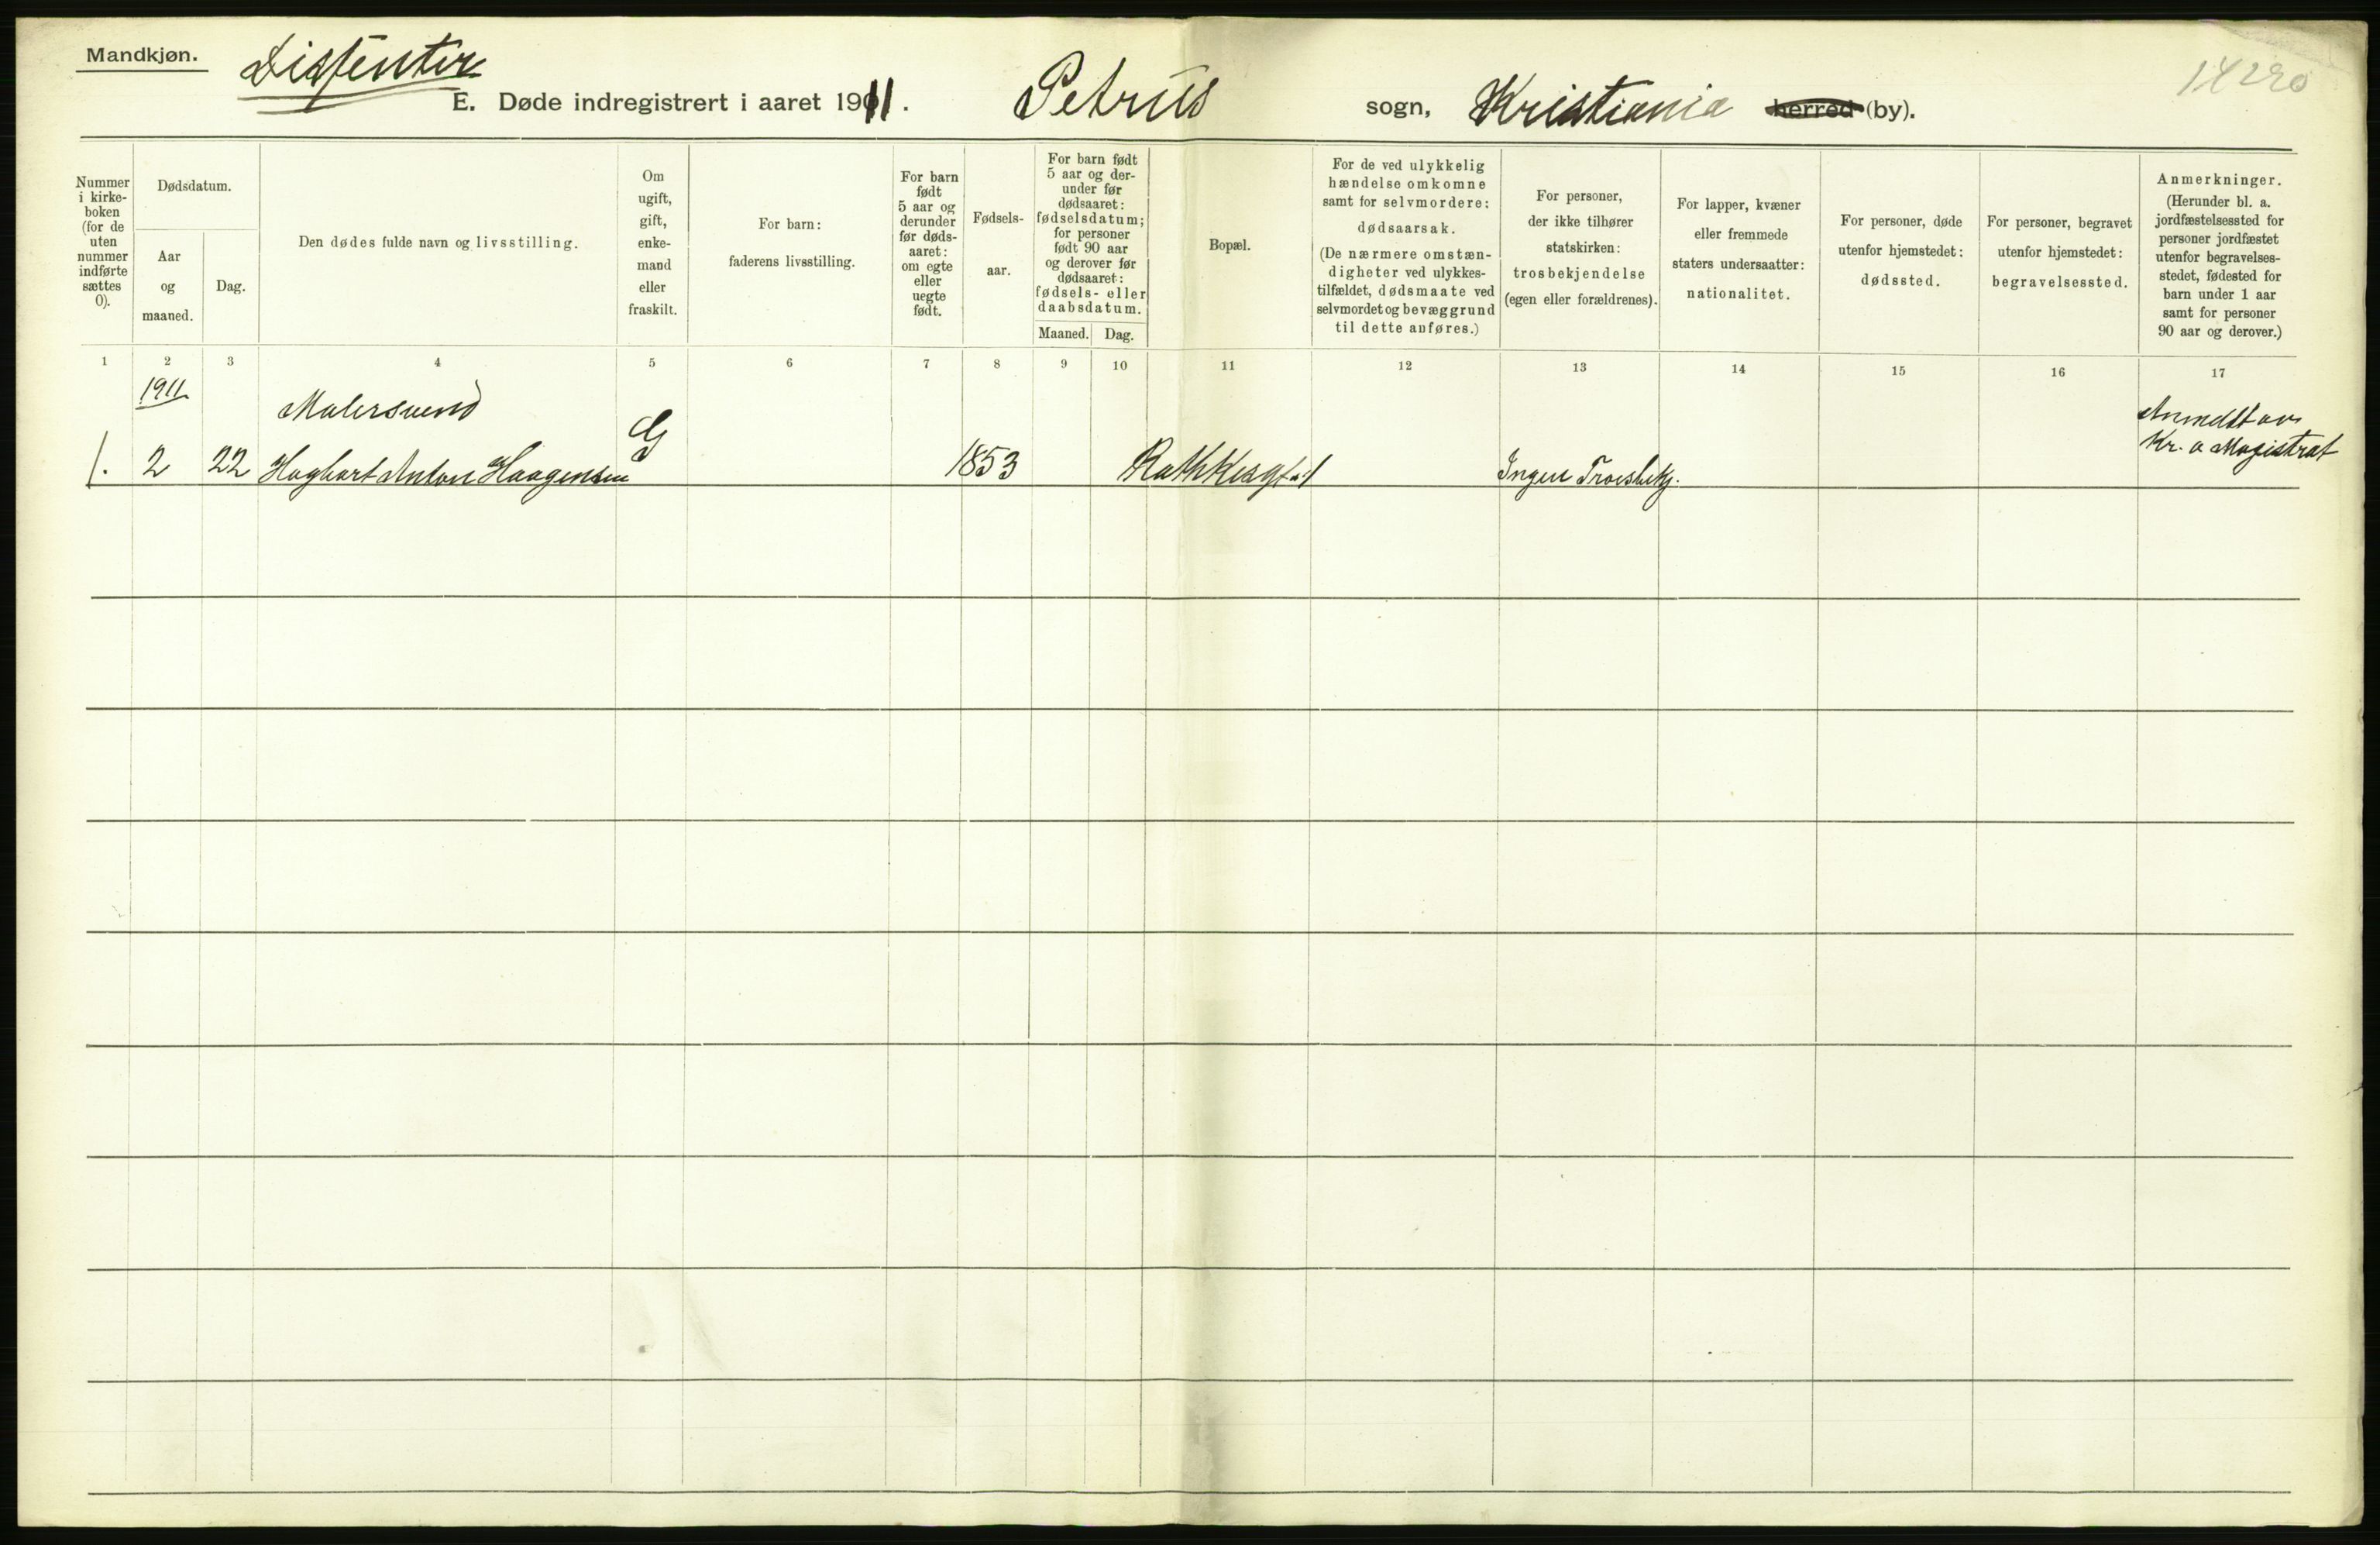 Mandkjøn.
Dissenter
E. Døde indregistrert i aaret 1911.
Petrus sogn, Kristiania herred (by).
14220
Nummer i kirkeboken (for de uten nummer indførte sættes 0).
Dødsdatum.
Aar og maaned.
Dag.
Den dødes fulde navn og livsstilling.
Om ugift, gift, enkemand eller fraskilt.
For barn: faderens livsstilling.
For barn født 5 aar og derunder før dødsaaret: om egte eller uegte født.
Fødselsaar.
For barn født 5 aar og derunder før dødsaaret: fødselsdatum; for personer født 90 aar og derover før dødsaaret: fødsels- eller daabsdatum.
Maaned. Dag.
Bopæl.
For de ved ulykkelig hændelse omkomne samt for selvmordere: dødsaarsak. (De nærmere omstændigheter ved ulykkestilfældet, dødsmaate ved selvmordet og bevæggrund til dette anføres.)
For personer, der ikke tilhører statskirken: trosbekjendelse (egen eller forældrenes).
For lapper, kvæner eller fremmede staters undersaatter: nationalitet.
For personer, døde utenfor hjemstedet: dødssted.
For personer, begravet utenfor hjemstedet: begravelsessted.
Anmerkninger. (Herunder bl. a. jordfæstelsessted for personer jordfæstet utenfor begravelsesstedet, fødested for barn under 1 aar samt for personer 90 aar og derover.)
1 2 3 4 5 6 7 8 9 10 11 12 13 14 15 16 17
1911
Malersvend
Anmeldt av
Kr. a Magistrat
1. 2 22 Hagbart Anton Haagensen G 1853 Ingen Troesbekj.